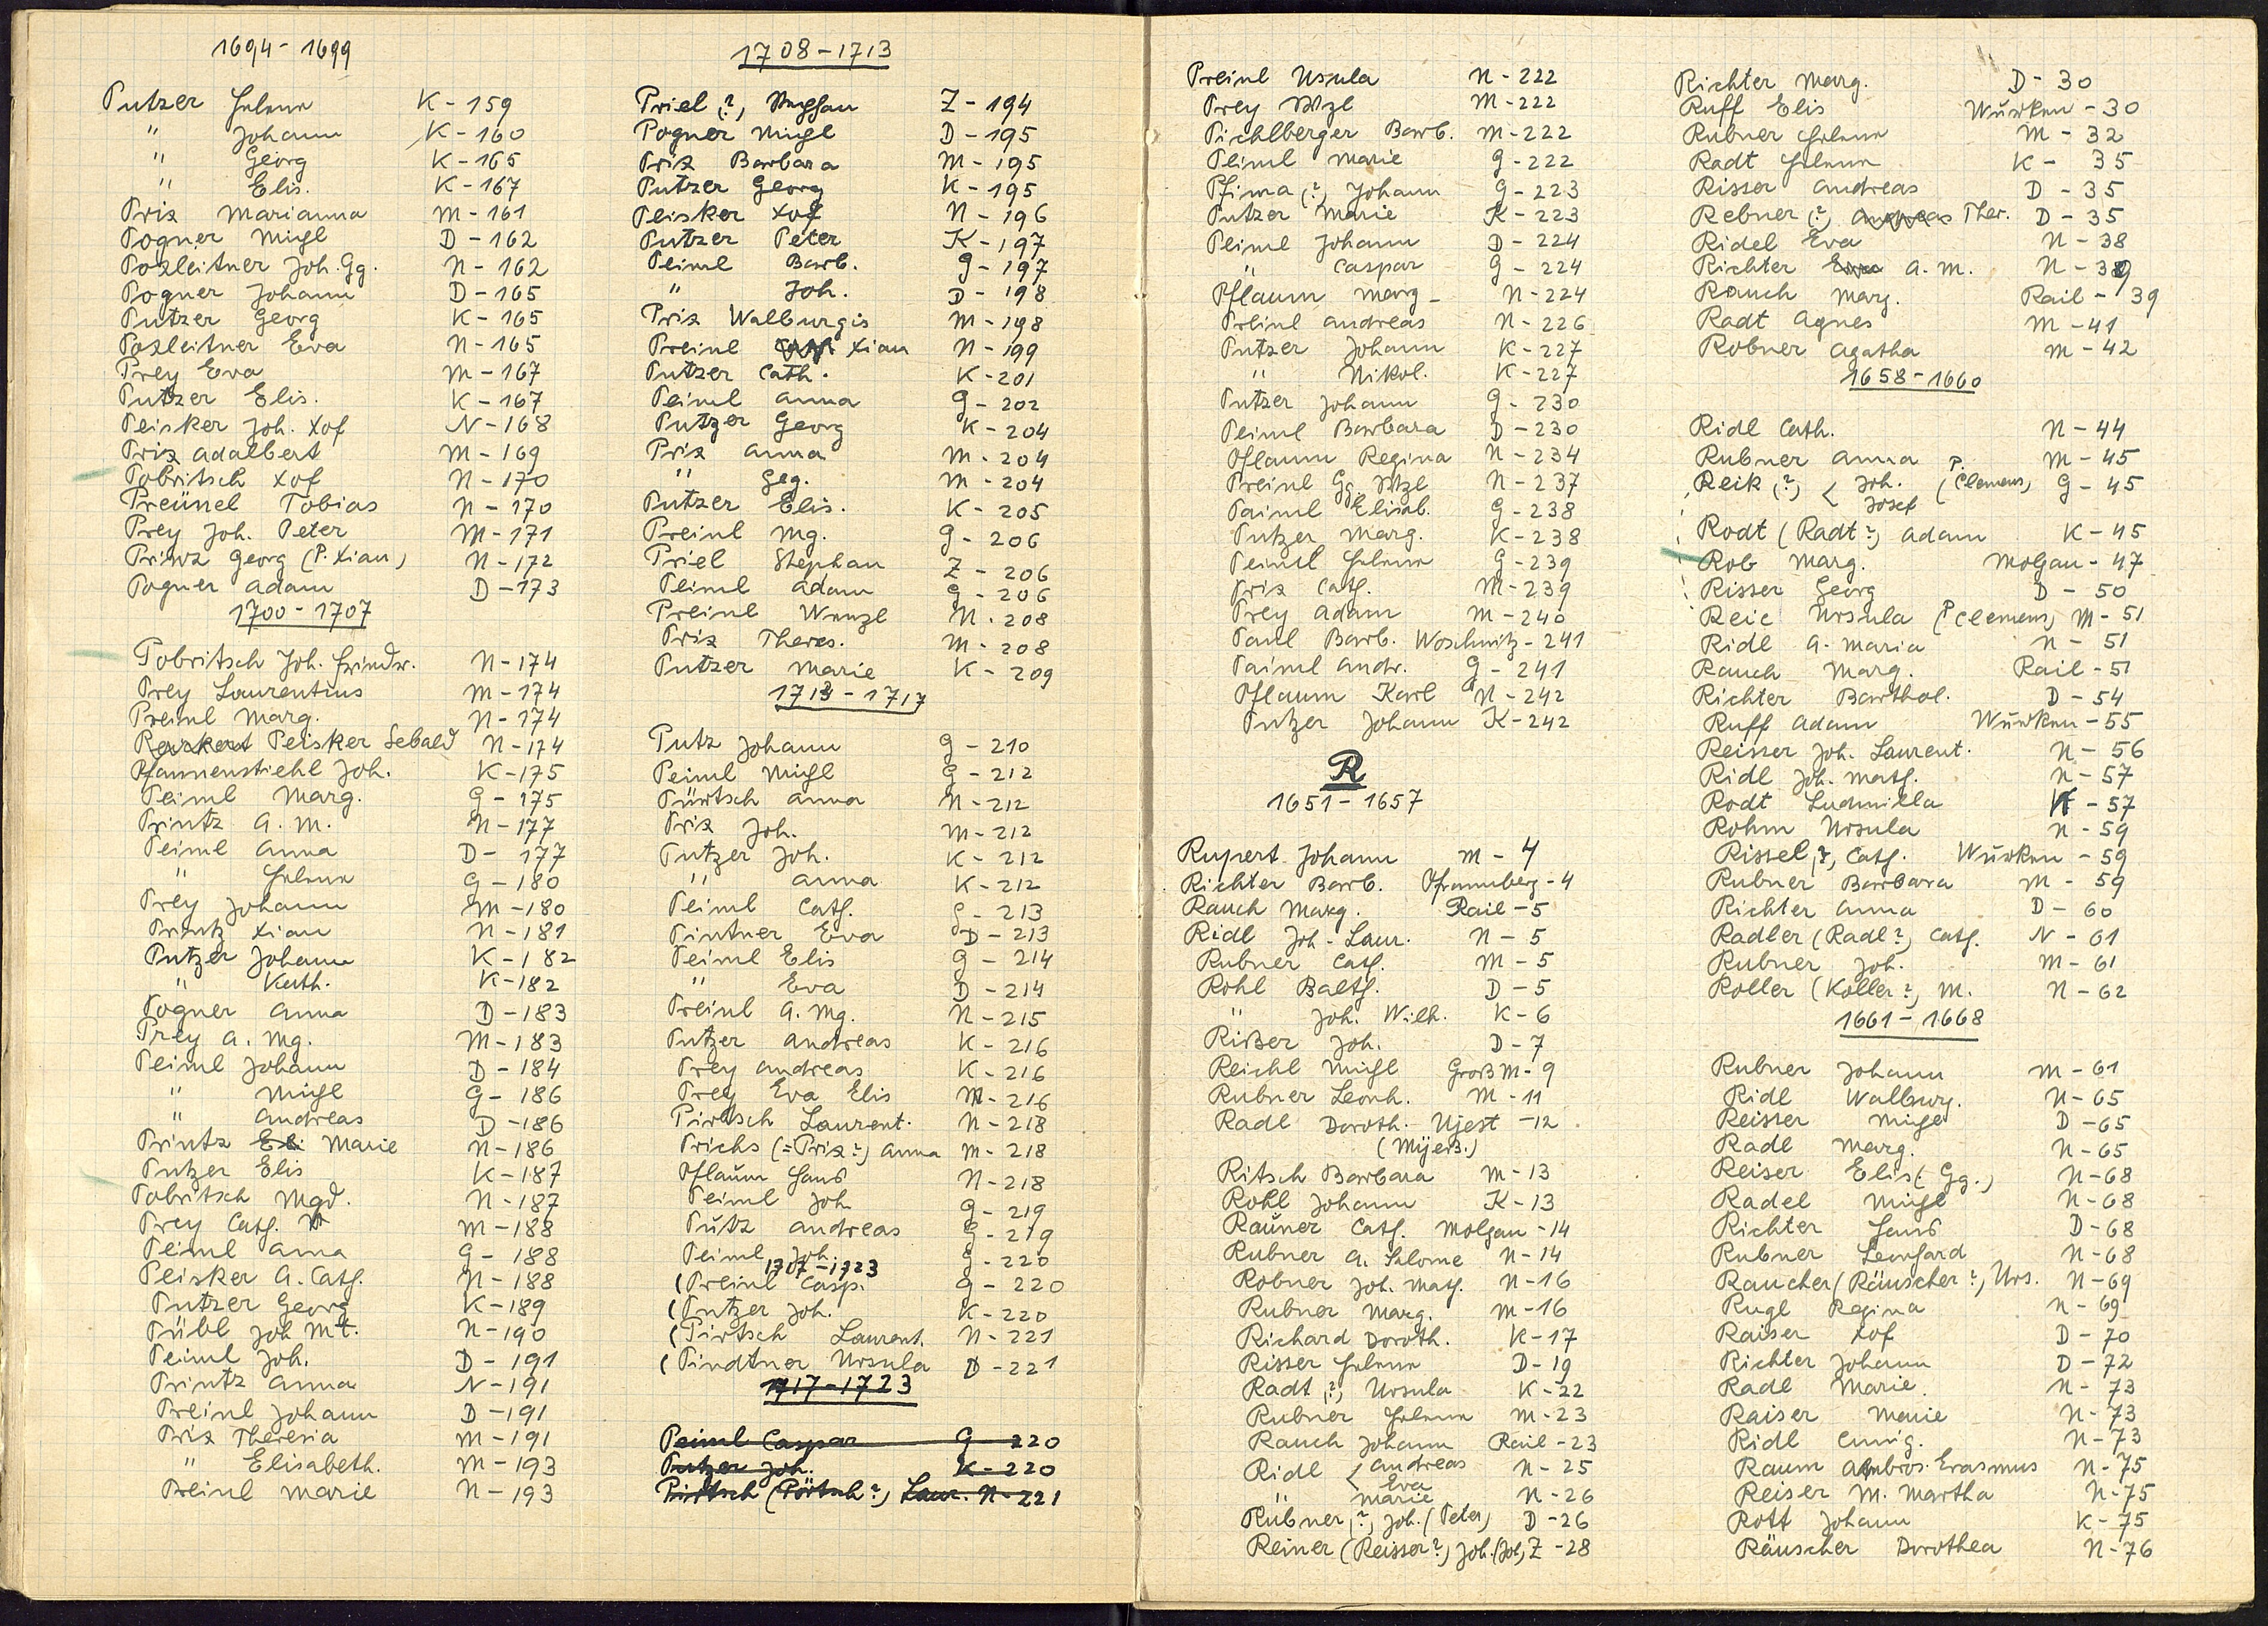 1694 - 1699
Putzer Helena K - 159
" Johann K - 160
" Georg K - 165
" Elis. K - 167
Prix Marianna M - 161
Pogner Michl D - 162
Poxleitner Joh. Gg. N - 162
Pogner Johann D - 165
Putzer Georg K - 165
Poxleitner Eva N - 165
Prey Eva M - 167
Putzer Elis. K - 167
Peisker Joh. Xof N - 168
Prix Adalbert M - 169
Pobritsch Xof N - 170
Preünel Tobias N - 170
Prey Joh. Peter M - 171
Georg (P. Xian) N - 172
Pogner Adam D - 173
1700 - 1707
Pobritsch Joh. N - 174
Prey Laurentius M - 174
Preinl Marg. N - 174
Peisker Sebald N - 174
Pfannenstiehl Joh. K - 175
Peiml Marg. G - 175
Printz A. M. N - 177
Peiml Anna D - 177
" Helena G - 180
Prey Johann M - 180
Printz Xian N - 181
Putzer Johann K - 182
" Kath. K - 182
Pogner Anna D - 183
Prey A. Mg. M - 183
Peiml Johann D - 184
" Michl G - 186
" Andreas D - 186
Printz Marie N - 186
Putzer Elis K - 187
Pobritsch Mgd. N - 187
Prey Cath. M - 188
Peiml Anna G - 188
Peisker A. Cath. N - 188
Putzer Georg K - 189
Pübl Joh Mt. N - 190
Peiml Joh. D - 191
Printz Anna N - 191
Preinl Johann D - 191
Prix Theresia M - 191
" Elisabeth. M - 193
Preinl Marie N - 193
1708 - 1713
Priel (?) Stephan Z - 194
Pogner Michl D - 195
Prix Barbara M - 195
Putzer Georg K - 195
Peisker Xof N - 196
Putzer Peter K - 197
Peiml Barb. G - 197
" Joh. D - 198
Prix Walburgis M - 198
Preinl Xian N - 199
Putzer Cath. K - 201
Peiml Anna G - 202
Putzer Georg K - 204
Prix Anna M - 204
" Geg. M - 204
Putzer Elis. K - 205
Preinl Mg. G - 206
Priel Stephan Z - 206
Peiml Adam G - 206
Preinl Wenzl N - 208
Prix Theres. M - 208
Putzer Marie K - 209
1713 - 1717
Putz Johann G - 210
Peiml Michl G - 212
Pürtsch Anna N - 212
Prix Joh. M - 212
Putzer Joh. K - 212
" Anna K - 212
Peiml Cath. G - 213
Pintner Eva D - 213
Peiml Elis G - 214
" Eva D - 214
Preinl A. Mg. N - 215
Putzer Andreas K - 216
Prey Andreas K - 216
Prey Eva Elis M - 216
Pirtsch Laurent. N - 218
Prichs (=Prix?) Anna M - 218
Pflaum Hans N - 218
Peiml Joh G - 219
Putz Andreas G - 219
Peiml Joh. G - 220
1707 - 1723
(Preinl Casp. G - 220
(Putzer Joh. K - 220
(Pirtsch Laurent. N - 221
(Pindtner Ursula D - 221
1717 - 1723
Peiml Caspar G 220
Putzer Joh. K - 220
Pirtsch (Pörtsch?) Laur. N - 221
Preinl Usula N - 222
Prey Wzl M - 222
Pichlberger Barb. M - 222
Peiml Marie G - 222
Pfima (?) Johann G - 223
Putzer Marie K - 223
Peiml Johann D - 224
" Caspar G - 224
Pflaum Marg - N - 224
Preinl Andreas N - 226
Putzer Johann K - 227
" Nikol. K - 227
Putzer Johann G - 230
Peiml Barbara D - 230
Pflaum Regina N - 234
Preinl Gg. Wzl N - 237
Paiml Elisab. G - 238
Putzer Marg. K - 238
Peiml Helena G - 239
Prix Cath. M - 239
Prey Adam M - 240
Paul Barb. Woschnitz - 241
Paiml Andr. G - 241
Pflaum Karl N - 242
Putzer Johann K - 242
R
1651 - 1657
Rupert Johann M - 4
Richter Barb. Pframberg - 4
Rauch Marg. Rail - 5
Ridl Joh - Laur. N - 5
Rubner Cath. M - 5
Rohl Balth. D - 5
" Joh. Wilh. K - 6
Rißer Joh. D - 7
Reichl Michl Groß M - 9
Rubner Leonh. M - 11
Radl Doroth. Ujest - 12
(Mijeß.)
Ritsch Barbara M - 13
Rohl Johann K - 13
Rauner Cath. Molgau - 14
Rubner A. Salome N - 14
Robner Joh. Math. N - 16
Rubner Marg. M - 16
Richard Doroth. K - 17
Risser Helena D - 19
Radt (?) Ursula K - 22
Rubner Helena M - 23
Rauch Johann Rail - 23
Ridl < Andreas N - 25
Eva
" Marie N - 26
Rübner (?) Joh. (Peter) D - 26
Reiner (Reisser?) Joh. (Jos) Z - 28
Richter Marg. D - 30
Ruff Elis Wurken - 30
Rubner Helena M - 32
Radt Helena K - 35
Risser Andreas D - 35
Rebner (?) Andreas Ther. D - 35
Ridel Eva N - 38
Richter Eva A. M. N - 39
Rauch Marg. Rail - 39
Radt Agnes M - 41
Robner Agatha M - 42
1658 - 1660
Ridl Cath. N - 44
Rubner Anna M - 45
Reik (?) < Joh. (P. Clemens) G - 45
Josef
Rodt (Radt?) Adam K - 45
Rob Marg. Molgau - 47
Risser Georg D - 50
Reic Ursula (P Clemens) M - 51
Ridl A. Maria N - 51
Rauch Marg. Rail - 51
Richter Barthol. D - 54
Ruff Adam Wurken - 55
Reisser Joh. Laurent. N - 56
Ridl Joh. Math. N - 57
Rodt Ludmilla K - 57
Rohm Ursula N - 59
Rissel (?) Cath. Wurken - 59
Rubner Barbara M - 59
Richter Anna D - 60
Radler (Radl?) Cath. N - 61
Rubner Joh. M - 61
Roller (Koller?) M. N - 62
1661 - 1668
Rubner Johann M - 61
Ridl Walburg. N - 65
Reisser Michl D - 65
Radl Marg. N - 65
Reiser Elis (Gg.) N - 68
Radel Michl N - 68
Richter Hans D - 68
Rubner Leonhard N - 68
Raucher (Räuscher?) Urs. N - 69
Rugl Regina N - 69
Raiser Xof D - 70
Richter Johann D - 72
Radl Marie N - 73
Raiser Marie N - 73
Ridl N - 73
Raum Ambros. Erasmus N - 75
Reiser M. Martha N - 75
Rott Johann K - 75
Räuscher Dorothea N - 76